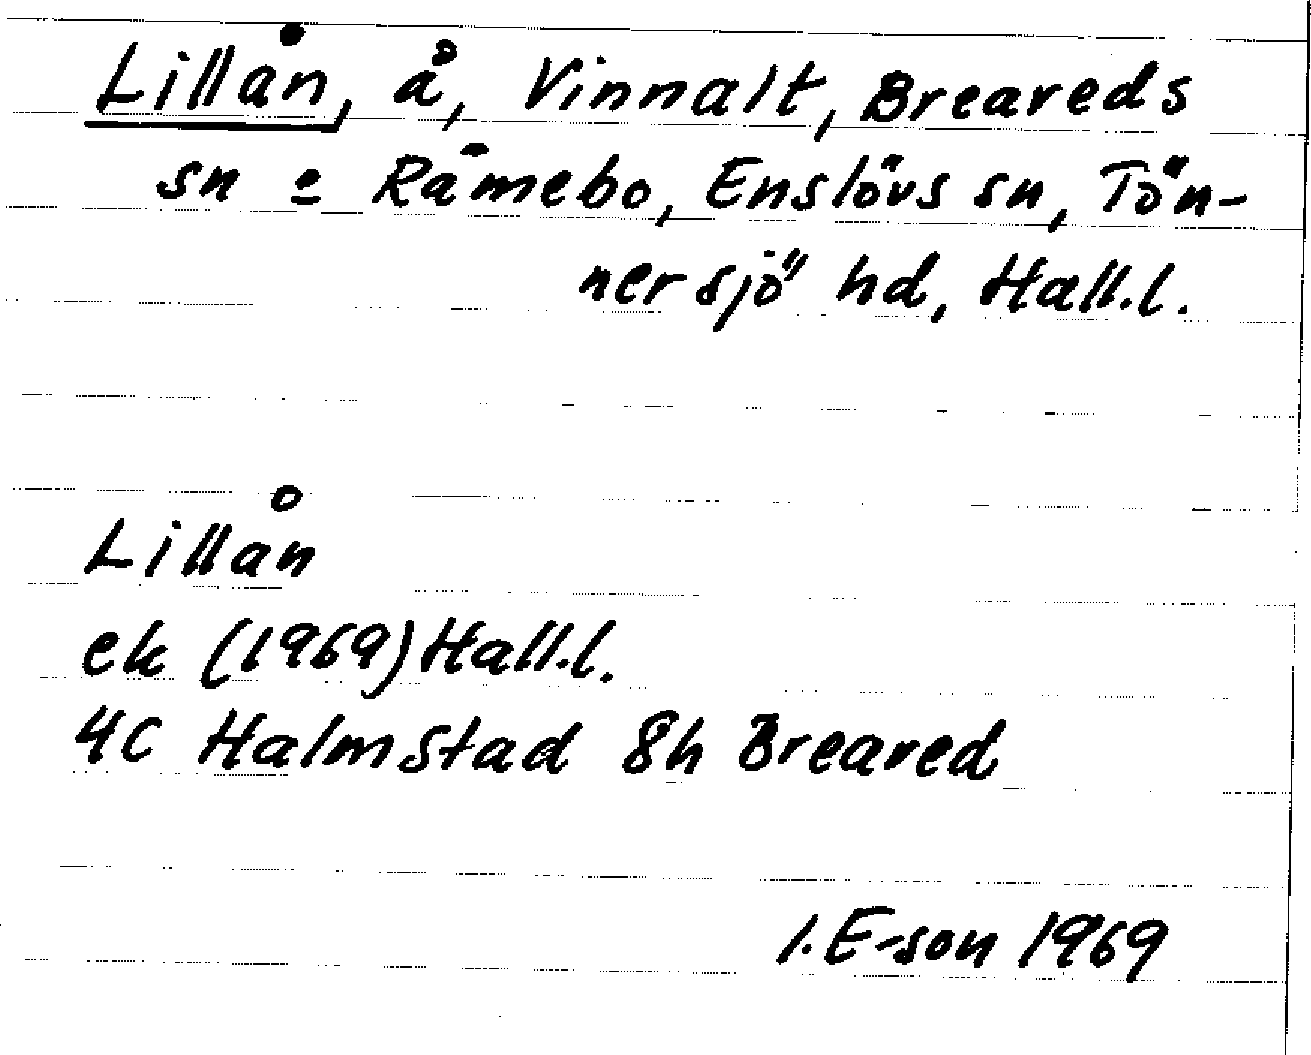 Lillån, å, Vinnalt, Breareds
sn = Råmebo, Enslövs sn, Tön-
nersjö hd, Hall.l.
Lillån
ek (1969) Hall.l.
4C Halmstad 8h Breared
I. E-son 1969